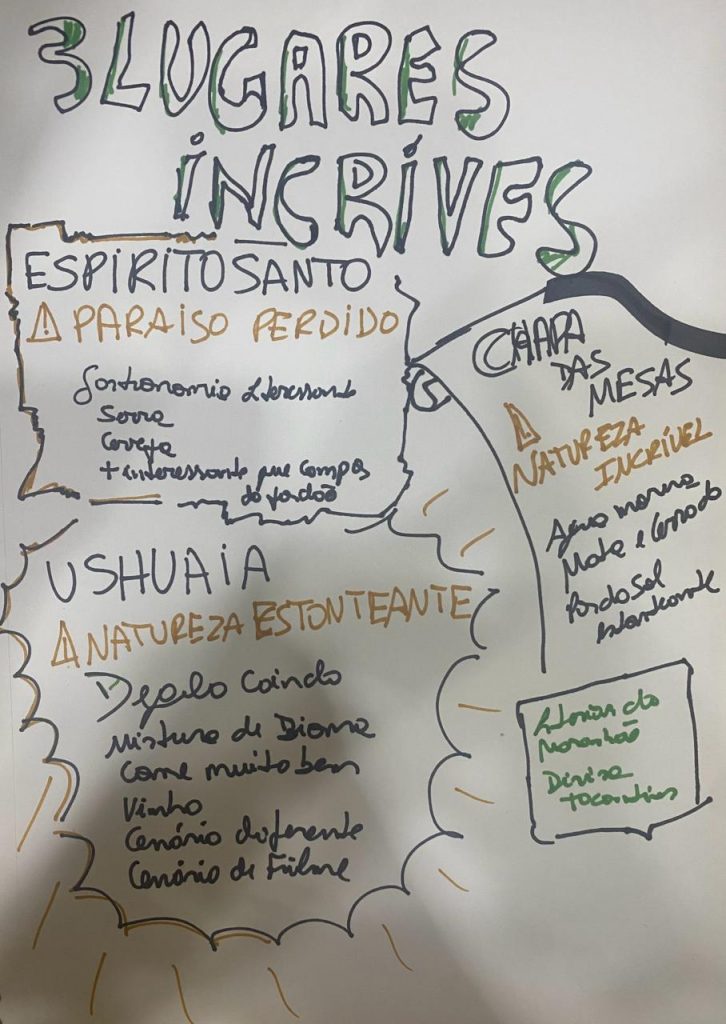 3 LUGARES
INCRÍVES
ESPIRITO SANTO
⚠ PARAISO PERDIDO
Gastronomia
Serra
Cerveja
+ interessante que Campos
do Jordão
CHAPA
DAS
MESAS
⚠
NATUREZA
INCRÍVEL
Agua morna
Mata e Cerrado
Por do Sol
USHUAIA
⚠ NATUREZA ESTONTEANTE
Degelo Caindo
Mistura de Bioma
Come muito bem
Vinho
Cenário diferente
Cenário de Filme
do
Maranhão
Divisa
tocantins